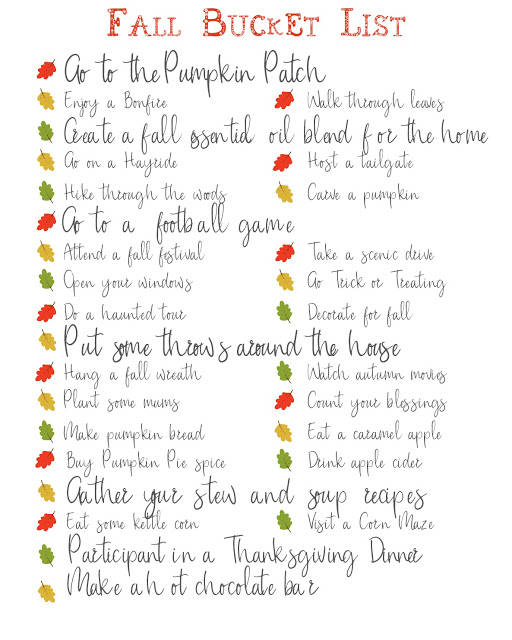 Fall Bucket List
Go to the Pumpkin Patch
Enjoy a Bonfire
Walk through leaves
Create a fall essential oil blend for the home
Go on a Hayride
Host a tailgate
Hike through the woods
Carve a pumpkin
Go to a football game
Attend a fall festival
Take a scenic drive
Open your windows
Go Trick or Treating
Do a haunted tour
Decorate for fall
Put some throws around the house
Hang a fall wreath
Watch autumn movies
Plant some mums
Count your blessings
Make pumpkin bread
Eat a caramel apple
Buy Pumpkin Pie spice
Drink apple cider
Gather your stew and soup recipes
Eat some kettle corn
Visit a Corn Maze
Participant in a Thanksgiving Dinner
Make a hot chocolate bar